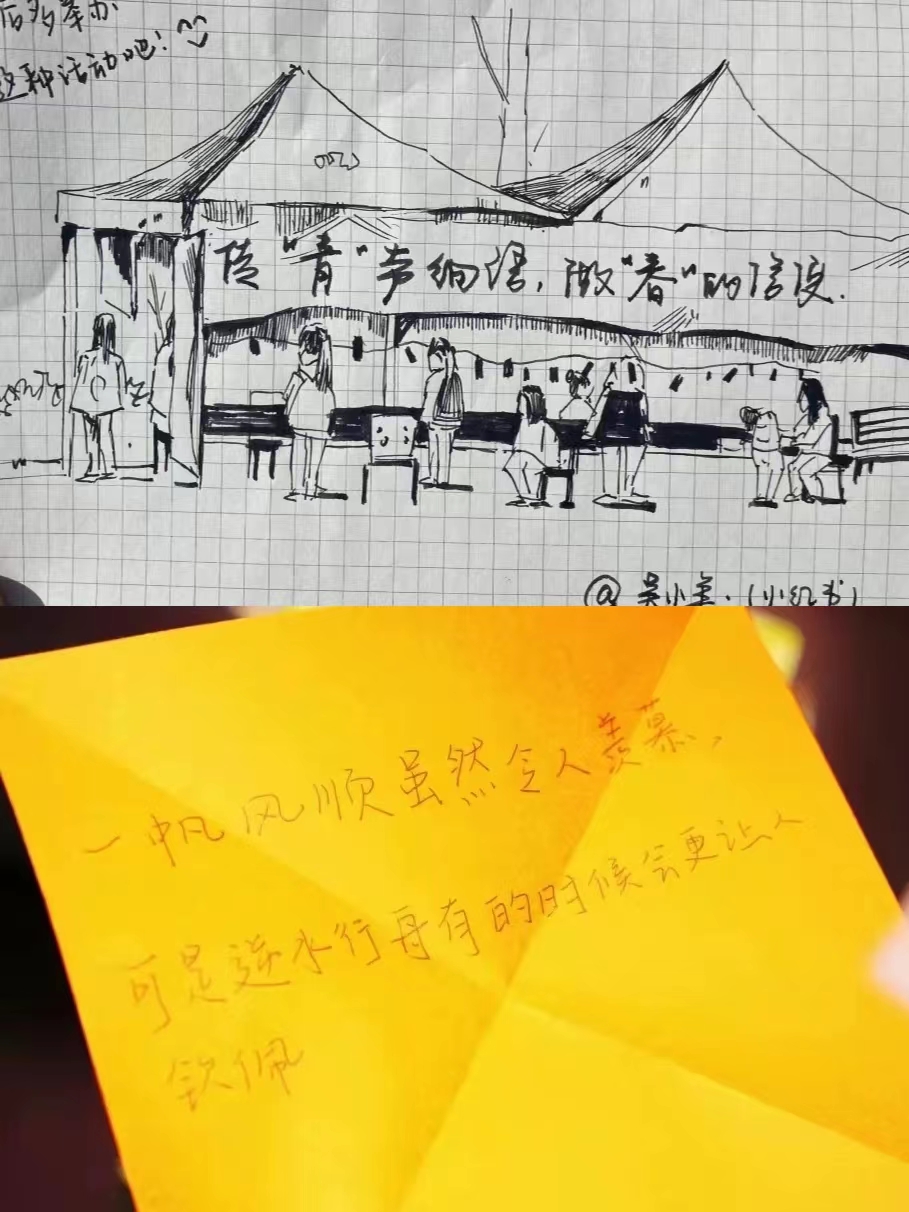 后多举办
这种活动吧!
传"青"声细语,做"春"的信使.
@吴小 (小红书)
一帆风顺虽然令人羡慕,
可是逆水行舟有的时候会更让人
钦佩